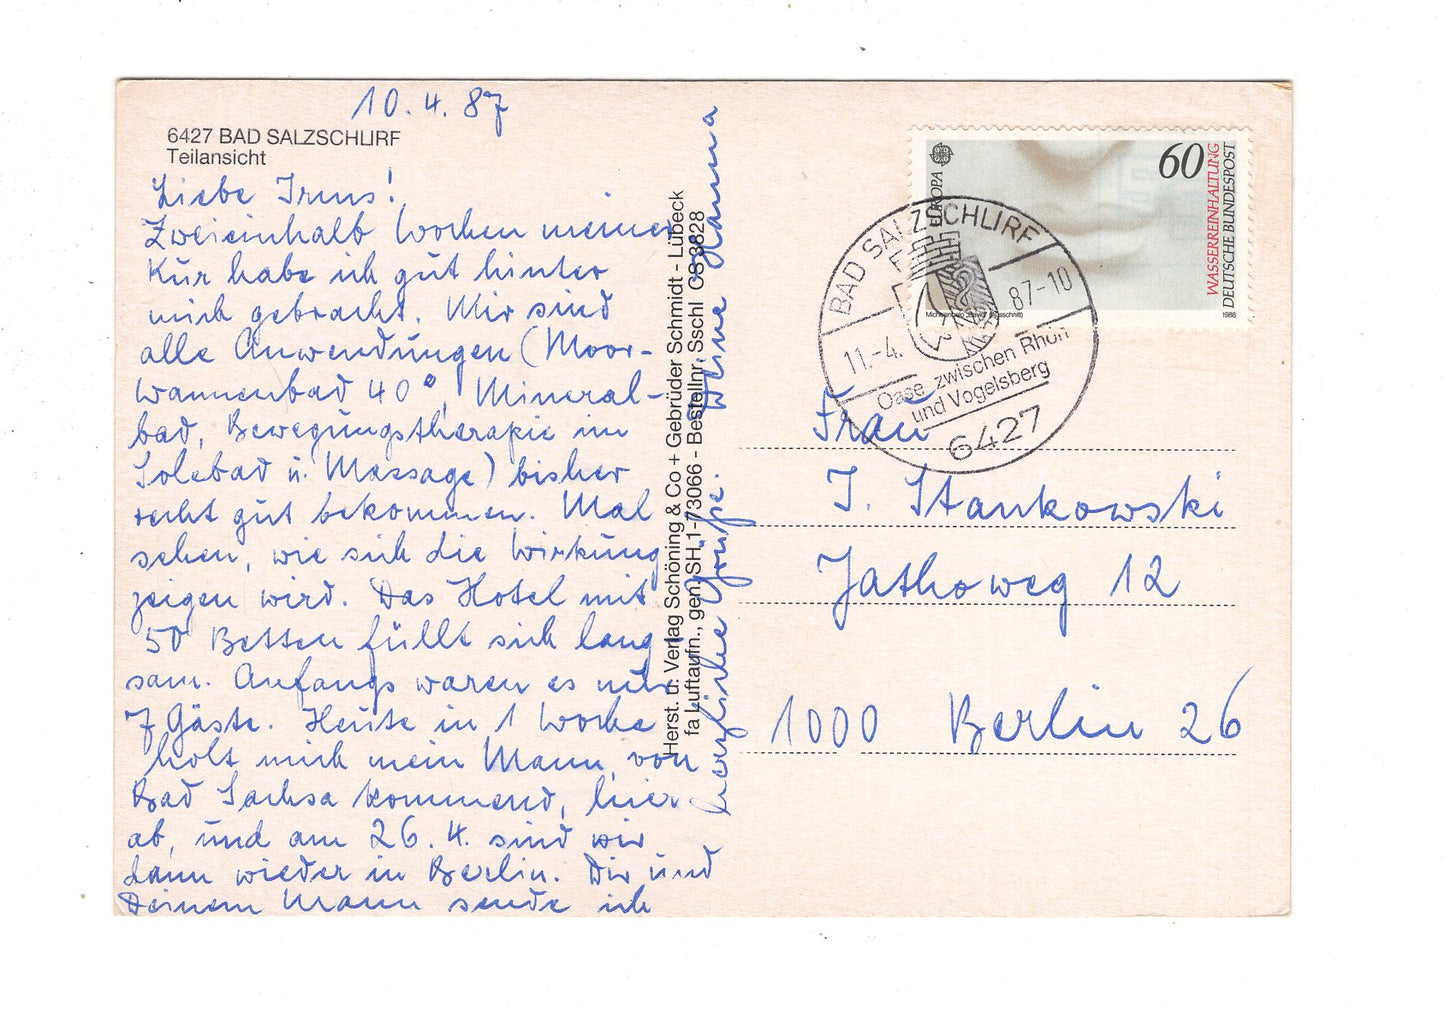 10.4.87
6427 BAD SALZSCHLIRF
Teilansicht
Liebe Irms!
Zweieinhalb Wochen meiner
Kur habe ich gut hinter
mich gebracht. Mir sind
alle Anwendungen (Moor-
wannenbad 40°, Mineral-
bad, Bewegungstherapie im
Solebad u. Massage) bisher
recht gut bekommen. Mal
sehen, wie sich die Wirkung
zeigen wird. Das Hotel mit
50 Betten füllt sich lang-
sam. Anfangs waren es nur
7 Gäste. Heute in 1 Woche
holt mich mein Mann, von
Bad Sachsa kommend, hier
ab, und am 26.4. sind wir
dann wieder in Berlin. Dir und
Deinem Mann sende ich
herzliche Grüße. Deine Hanna
Herst. u. Verlag Schöning & Co + Gebrüder Schmidt - Lübeck
fa Luftaufn., gen. SH 1-73066 - Bestellnr. Sschl CS 3828
EUROPA
60
WASSERREINHALTUNG
DEUTSCHE BUNDESPOST
Michelangelo „David“ (Ausschnitt)
1986
BAD SALZSCHLIRF
11.-4. 87-10
Oase zwischen Rhön
und Vogelsberg
6427
Frau
I. Stankowski
Jathoweg 12
1000 Berlin 26